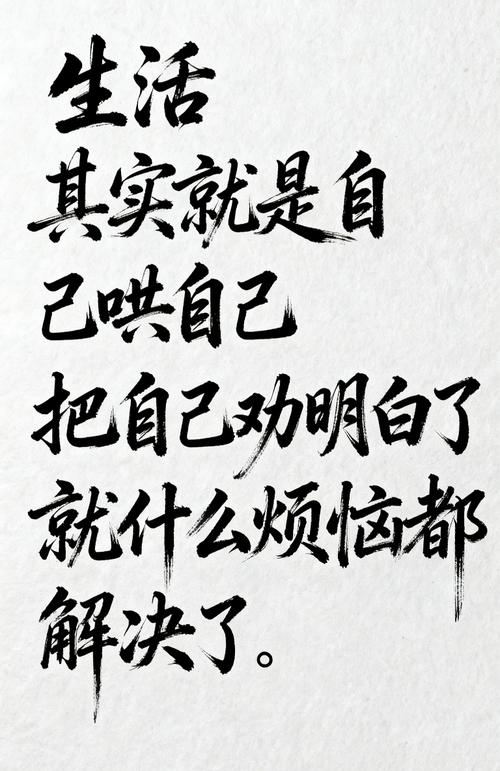 生活
其实就是自
己哄自己
把自己劝明白了
就什么烦恼都
解决了。